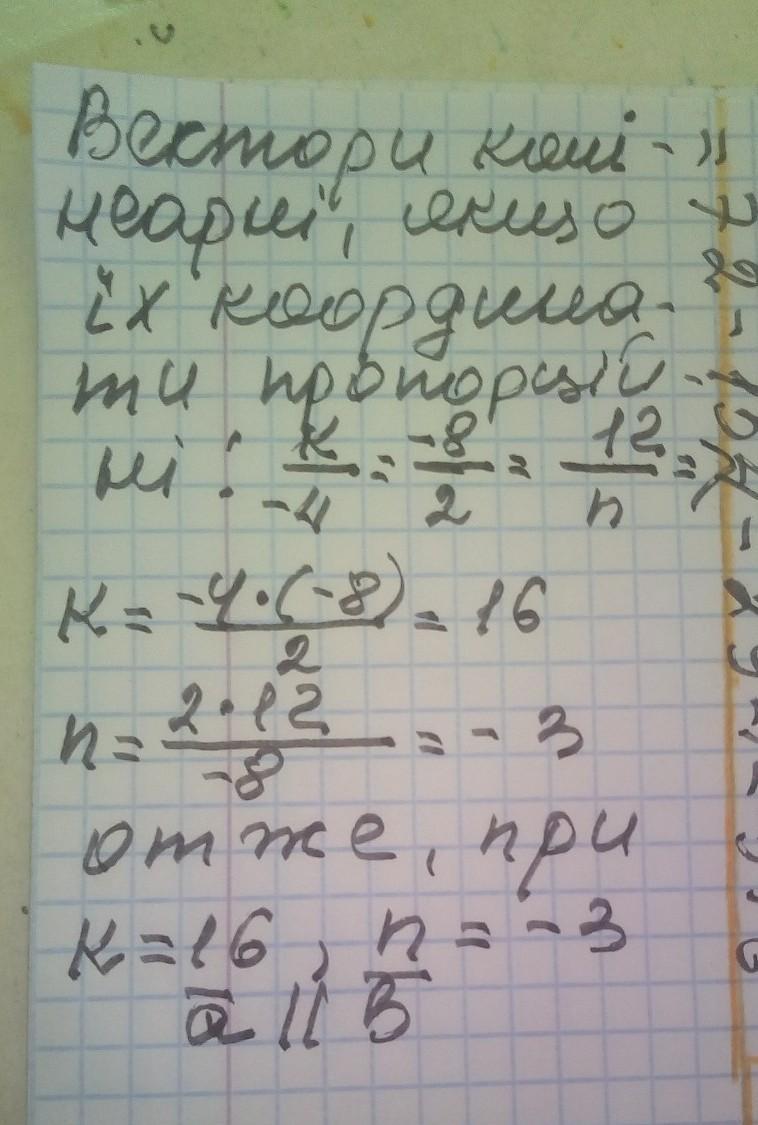 Вектори колі-
неарні, якщо
їх координа-
ти пропорцій-
ні: k/-4 = -8/2 = 12/n =>
k = -4·(-8)/2 = 16
n = 2·12/-8 = -3
отже, при
k=16, n = -3
a̅ || b̅